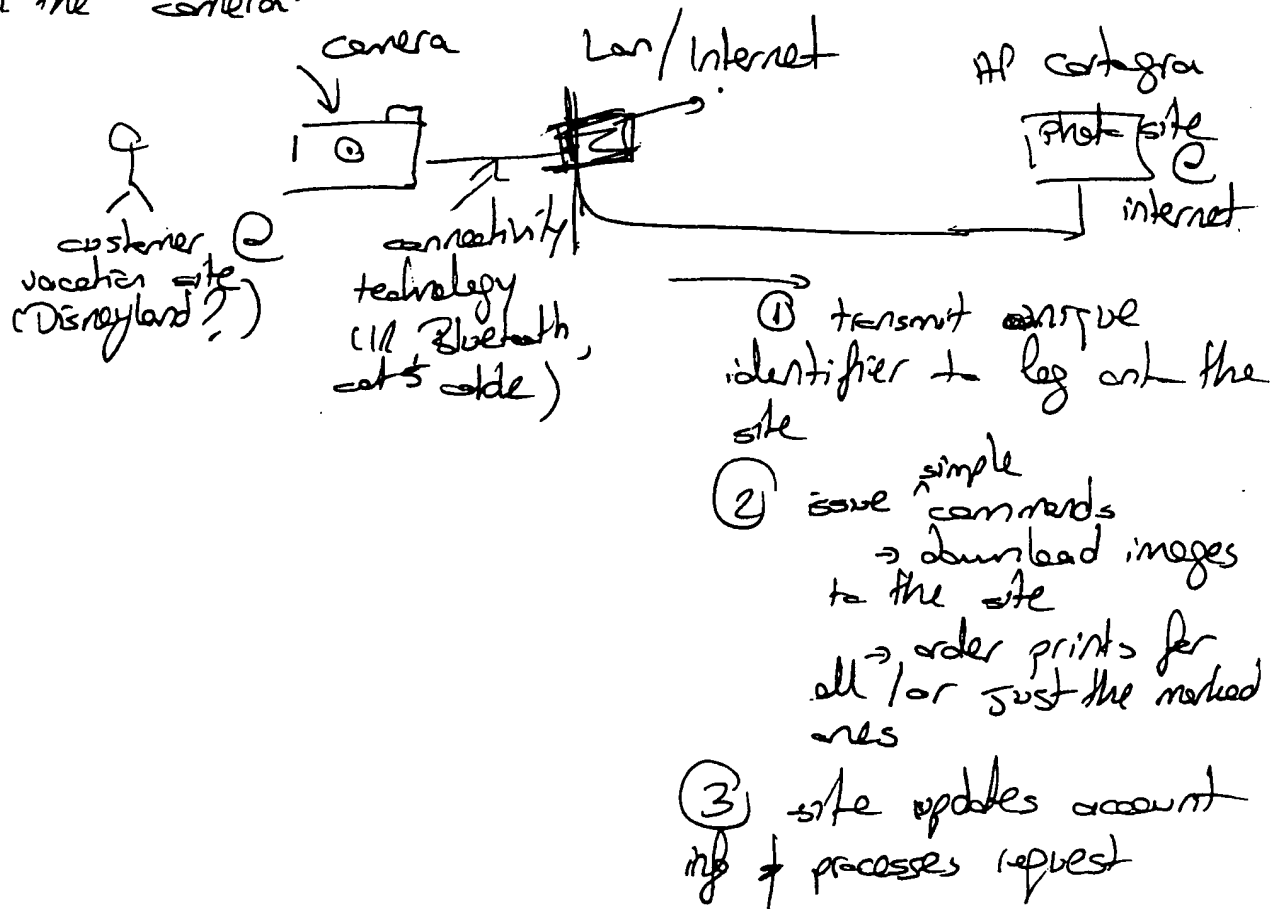 the camera
camera
Lan/Internet
HP cartogra
photo site
@
internet.
customer @
vacation site
(Disneyland?)
connectivity
technology
(IR Bluetooth,
cat5 cable)
① transmit unique
identifier to log onto the
site
② issue simple commands
→ download images
to the site
→ order prints for
all / or just the marked
ones
③ site updates account
info & processes request